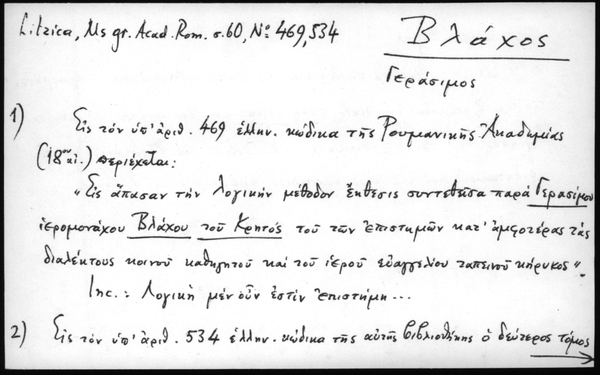 Litzica, Ms gr. Acad. Rom. σ. 60, Nº 469, 534
Βλάχος
Γεράσιμος
1) Εἰς τόν ὑπ' ἀριθ. 469 ἑλλην. κώδικα τῆς Ρουμανικῆς Ἀκαδημίας
(18ου αἰ.) περιέχεται:
"Εἰς ἅπασαν τήν λογικήν μέθοδον ἔκθεσις συντεθεῖσα παρά Γερασίμου
ἱερομονάχου Βλάχου τοῦ Κρητός τοῦ τῶν ἐπιστημῶν κατ' ἀμφοτέρας τάς
διαλέκτους κοινοῦ καθηγητοῦ καί τοῦ ἱεροῦ εὐαγγελίου ταπεινοῦ κήρυκος".
Inc.: Λογική μέν οὖν ἐστίν ἐπιστήμη...
2) Εἰς τόν ὑπ' ἀριθ. 534 ἑλλην. κώδικα τῆς αὐτῆς βιβλιοθήκης ὁ δεύτερος τόμος